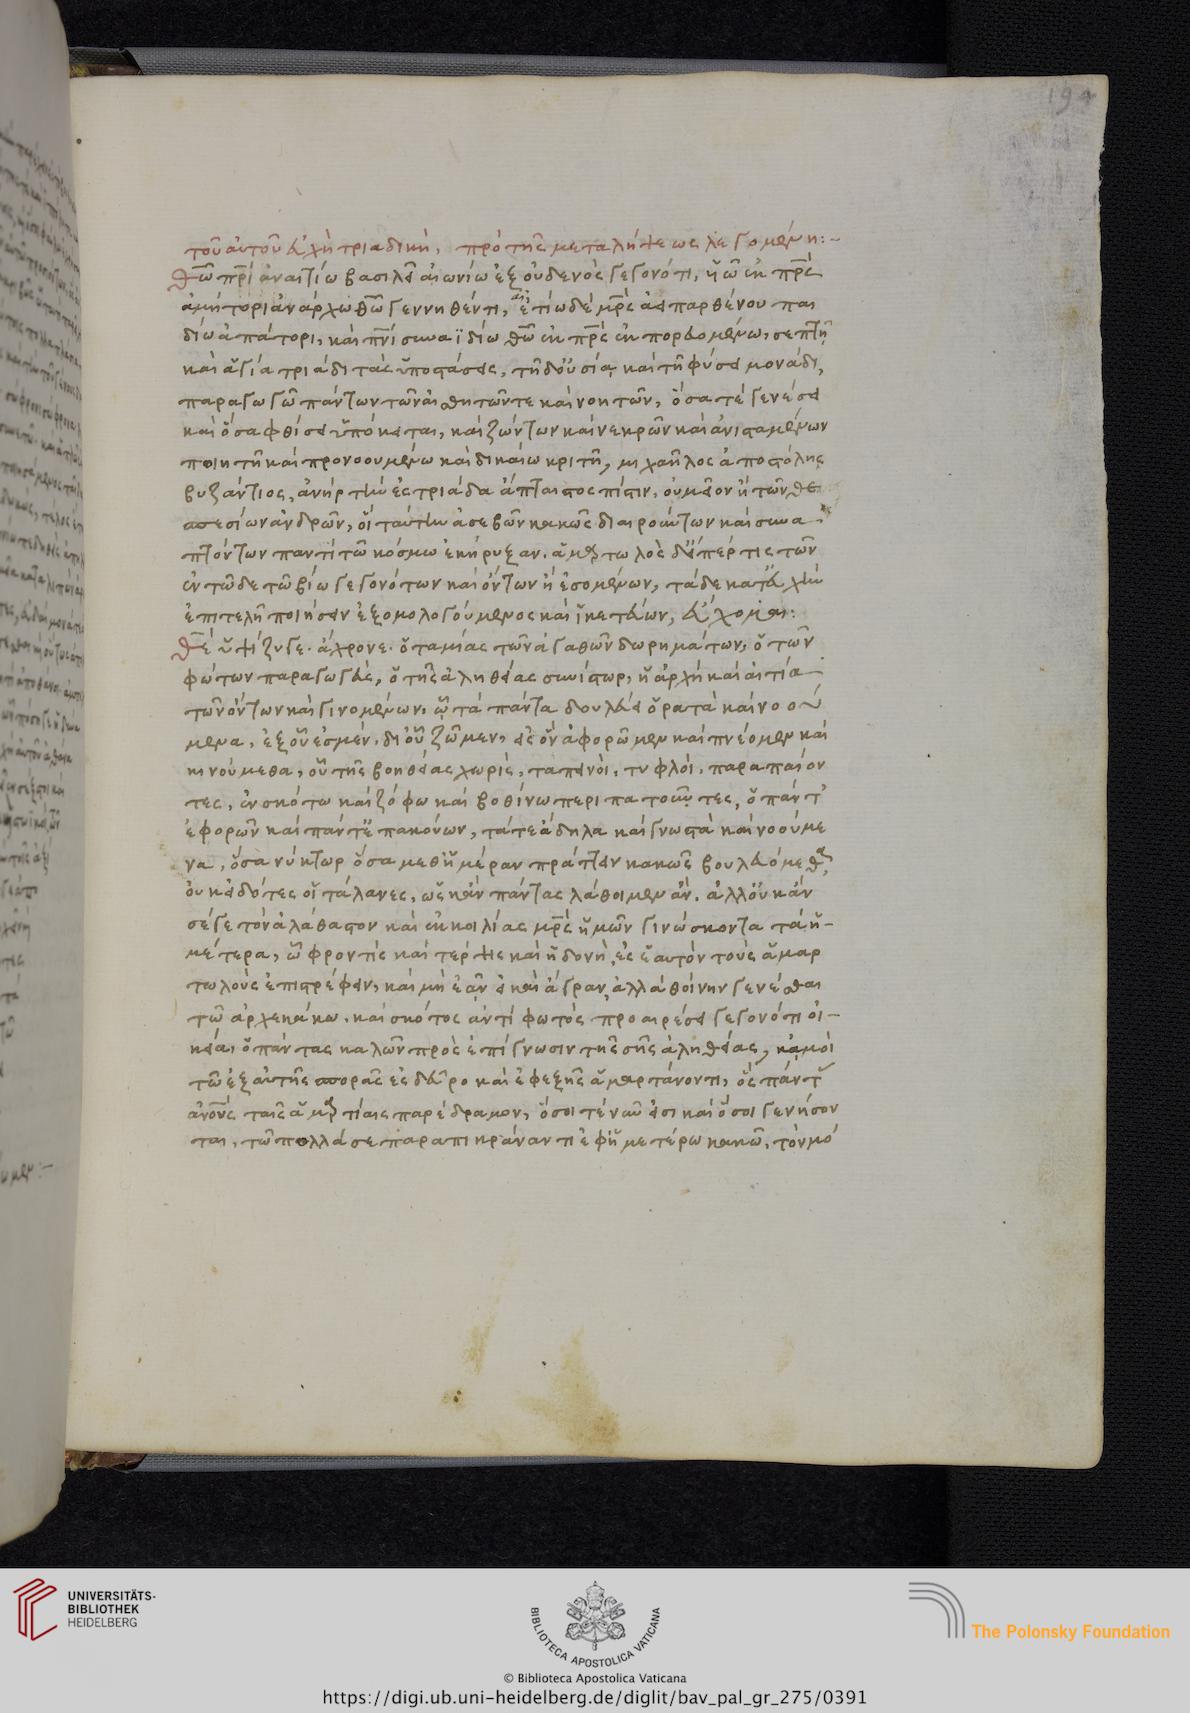 194
τοῦ αὐτοῦ εὐχὴ τριαδικὴ, πρὸ τῆς μεταλήψεως λεγομένη:-
Θω πρὶ ἀναιτίω βασιλεῖ αἰωνίω ἐξ οὐδενὸς γεγονότι, υἱω ἐκ πρς
ἀμήτορι ἀνάρχω θω γεννηθέντι, ἐπὶ δὲ μρς ἀειπαρθένου παι
δίω ἀπάτορι, καὶ πνι συναϊδίω θω ἐκ πρς ἐκπορευομένω, σεπτῆ
καὶ ἁγία τριάδι ταῖς ὑποστάσεσι, τῆ δ' οὐσία καὶ τῆ φύσει μονάδι,
παραγωγῶ πάντων τῶν αἰσθητῶν τε καὶ νοητῶν, ὅσα τὲ γενέσει
καὶ ὅσα φθίσει ὑπόκειται, καὶ ζώντων καὶ νεκρῶν καὶ ἀνισταμένων
ποιητῆ καὶ προνοουμένω καὶ δικαίω κριτῆ, μιχαῆλος ἀποστόλης
βυζάντιος, ἀνὴρ τὴν ἐς τριάδα ἄπταιστος πίστιν, οὐ μεῖον ἢ τῶν θε
σπεσίων ἀνδρῶν, οἳ ταύτην ἀσεβῶν κακῶς διαιρούντων καὶ συνα
πτόντων παντὶ τῶ κόσμω ἐκήρυξαν. ἁμαρτωλὸς δ' ὑπέρ τις τῶν
ἐν τῶδε τῶ βίω γεγονότων καὶ ὄντων ἢ ἐσομένων, τάδε κατ' εὐχὴν
ἐπιτελῆ ποιήσειν ἐξομολογούμενος καὶ ἱκετεύων, εὔχομαι:
Θὲ ὑψίζυγε. ἄχρονε. ὁ ταμίας τῶν ἀγαθῶν δωρημάτων, ὁ τῶν
φώτων παραγωγεὺς, ὁ τῆς ἀληθείας συνίστωρ, ἡ ἀρχὴ καὶ αἰτία
τῶν ὄντων καὶ γινομένων, ὧ τὰ πάντα δουλεύει ὁρατὰ καὶ νοού
μενα, ἐξ οὗ ἐσμὲν, δι' οὗ ζῶμεν, εἰς ὃν ἀφορῶμεν καὶ πνέομεν καὶ
κινούμεθα, οὗ τῆς βοηθείας χωρὶς, ταπεινοὶ, τυφλοὶ, παραπαίον
τες, ἐν σκότω καὶ ζόφω καὶ βοθίνω περιπατοῦντες, ὁ πάντ'
ἐφορῶν καὶ πάντ' ὑπακούων, τά τε ἄδηλα καὶ γνωστὰ καὶ νοούμε
να, ὅσα νύκτωρ ὅσα μεθ' ἡμέραν πράττειν κακῶς βουλευόμεθα,
οὐκ εἰδότες οἱ τάλανες, ὡς κἂν πάντας λάθοιμεν ἂν. ἀλλ' οὐκ ἂν
σέ γε τὸν ἀλάθαστον καὶ ἐκ κοιλίας μρς ἡμῶν γινώσκοντα τὰ ἡ-
μέτερα, ὧ φροντὶς καὶ τέρψις καὶ ἡδονὴ, εἰς ἑαυτὸν τοὺς ἁμαρ
τωλοὺς ἐπιστρέφειν, καὶ μὴ ἐᾶν εἰκαὶ ἄγραν ἀλλὰ θοίνην γενέσθαι
τῶ ἀρχεκάκω. καὶ σκότος ἀντὶ φωτὸς προαιρέσει γεγονότι οἰ-
κεία, ὁ πάντας καλῶν πρὸς ἐπίγνωσιν τῆς σῆς ἀληθείας, κἀμοὶ
τῶ ἐξ αὐτῆς σπορᾶς ἐς δεῦρο καὶ ἐφεξῆς ἁμαρτάνοντι, ὃς πάντας
ἀνους ταῖς ἁμαρτίαις παρέδραμον, ὅσοι τὲ νῦν εἰσι καὶ ὅσοι γενήσον
ται, τῶ πολλά σε παραπικράναντι ἐφ' ἡμετέρω κακῶ, τὸν μό
UNIVERSITÄTS-
BIBLIOTHEK
HEIDELBERG
BIBLIOTECA APOSTOLICA VATICANA
The Polonsky Foundation
© Biblioteca Apostolica Vaticana
https://digi.ub.uni-heidelberg.de/diglit/bav_pal_gr_275/0391